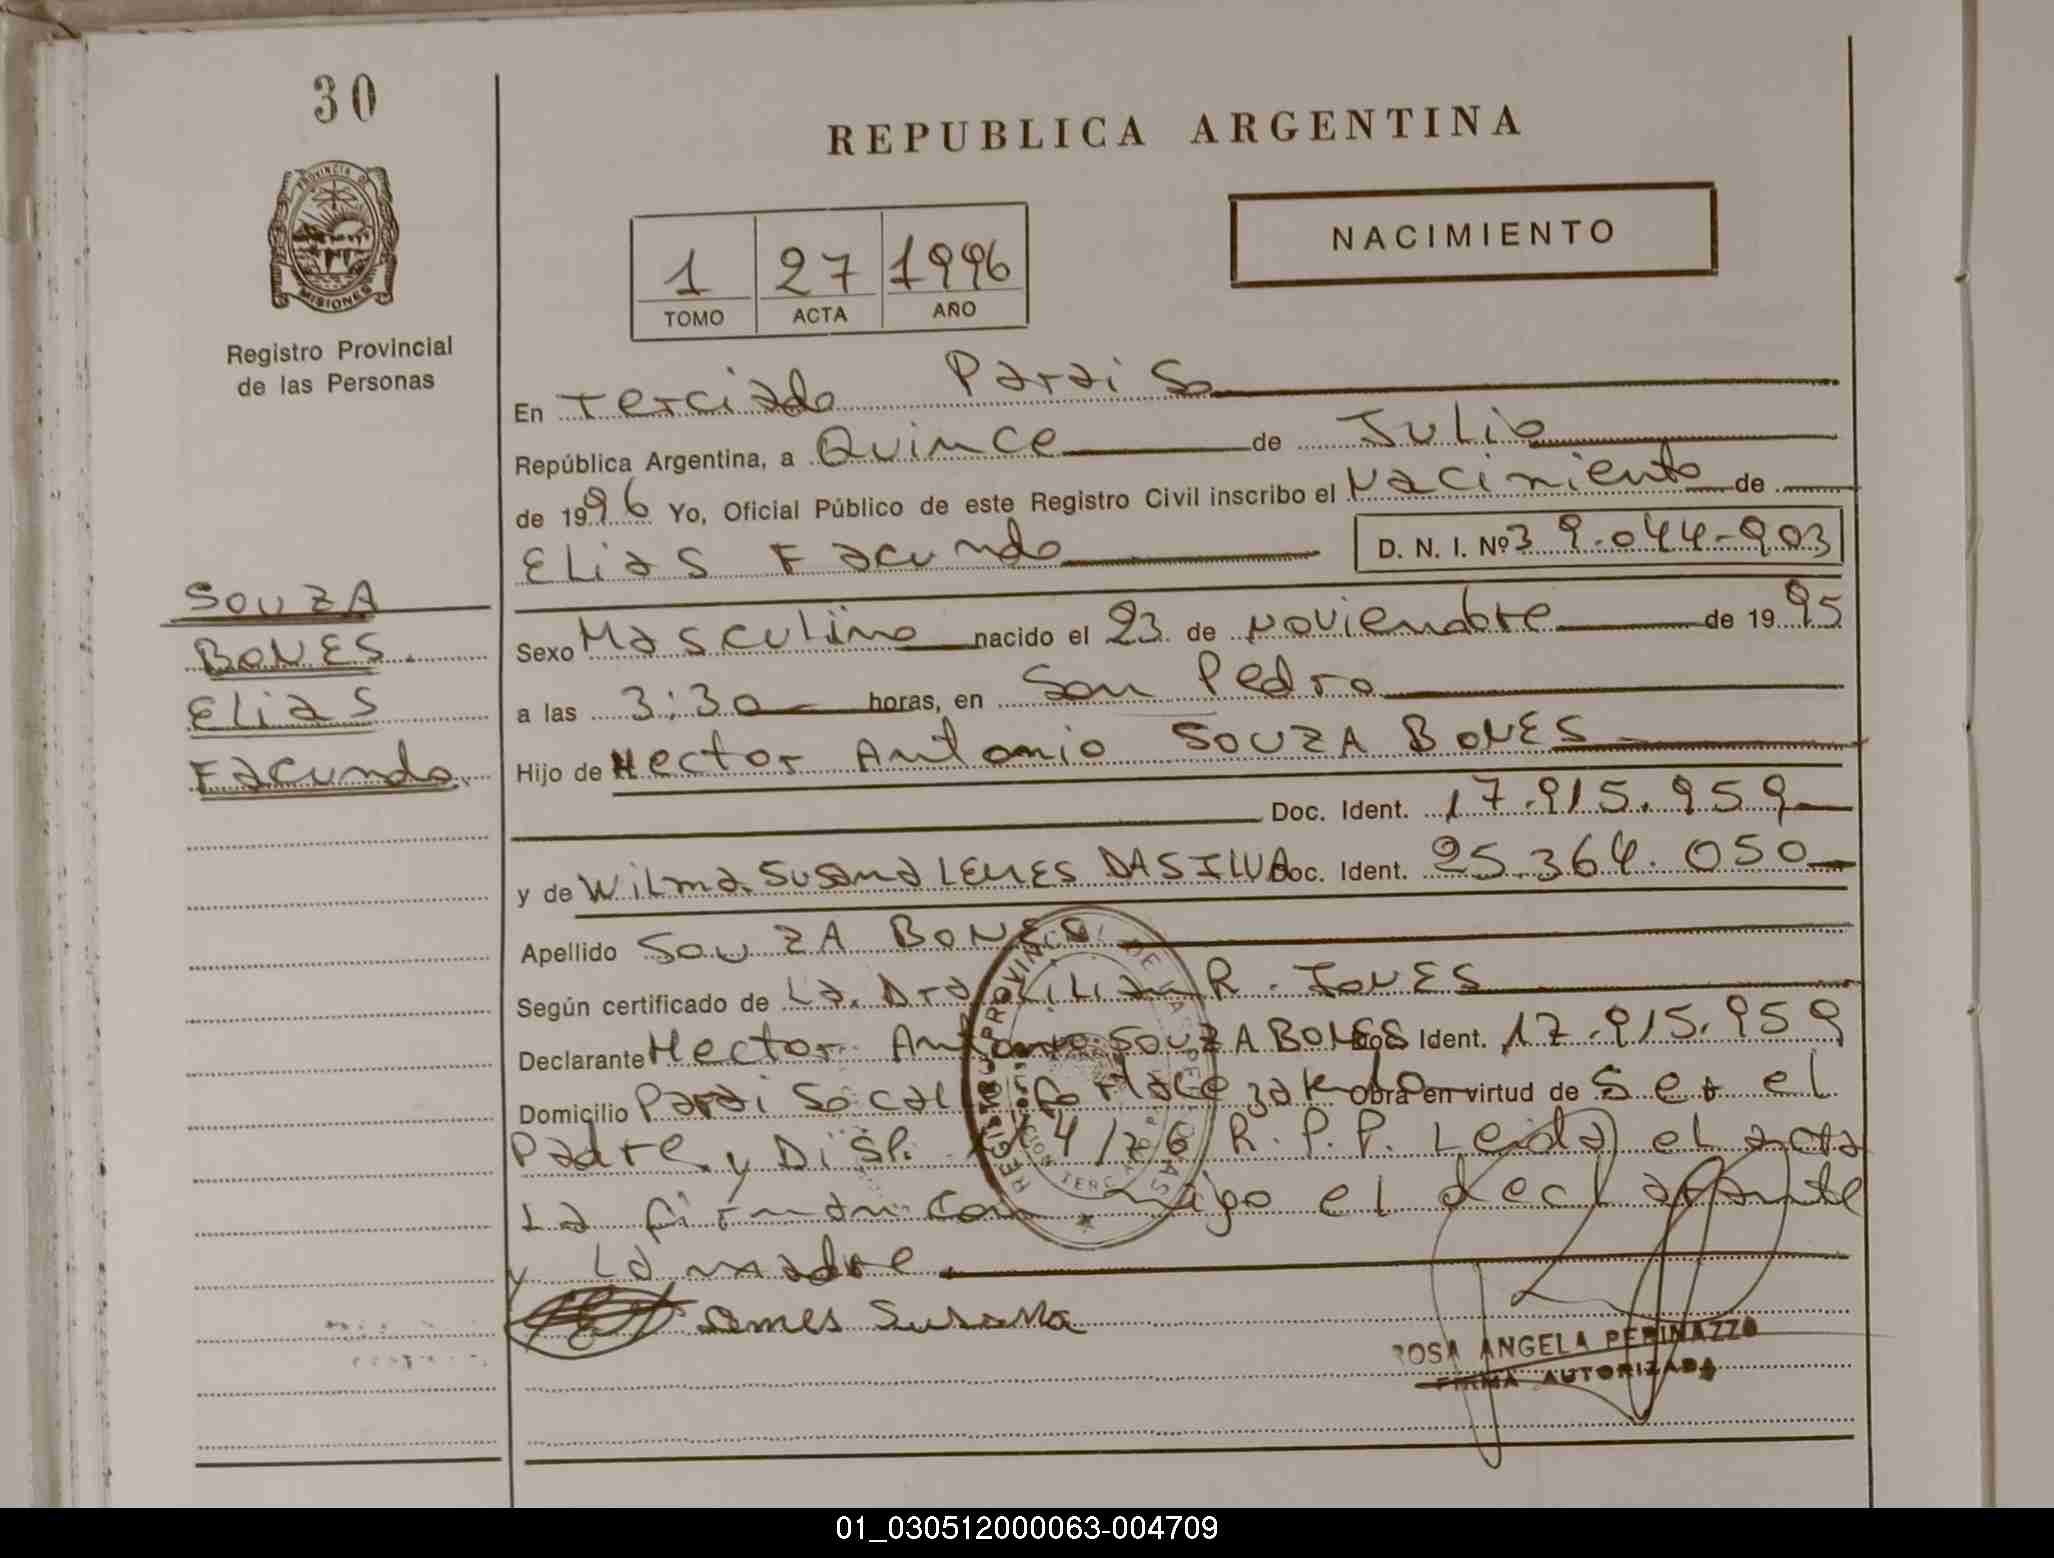 30
REPUBLICA ARGENTINA
PROVINCIA DE
MISIONES
NACIMIENTO
1 27 1996
TOMO ACTA AÑO
Registro Provincial
de las Personas
En Terciado Paraiso
República Argentina, a Quince de Julio
de 1996 Yo, Oficial Público de este Registro Civil inscribo el Nacimiento de
Elias Facundo D. N. I. Nº 39.044-903
SOUZA
BONES
Elias
Facundo
Sexo Masculino nacido el 23 de Noviembre de 1995
a las 3:30 horas, en San Pedro
Hijo de Hector Antonio SOUZA BONES
Doc. Ident. 17.915.959
y de Wilma Susana LEMES DA SILVA Doc. Ident. 25.364.050
Apellido SOUZA BONES
Según certificado de La Dra Lilian R. JONES
Declarante Hector Antonio SOUZA BONES Doc. Ident. 17.915.959
Domicilio Paraiso Obra en virtud de Ser el
Padre y Disp. 4/76 R.P.P. Leida el acta
La firman con migo el declarante
y La madre.
Lemes Susana
ROSA ANGELA PERINAZZO
FIRMA AUTORIZADA
01_030512000063-004709